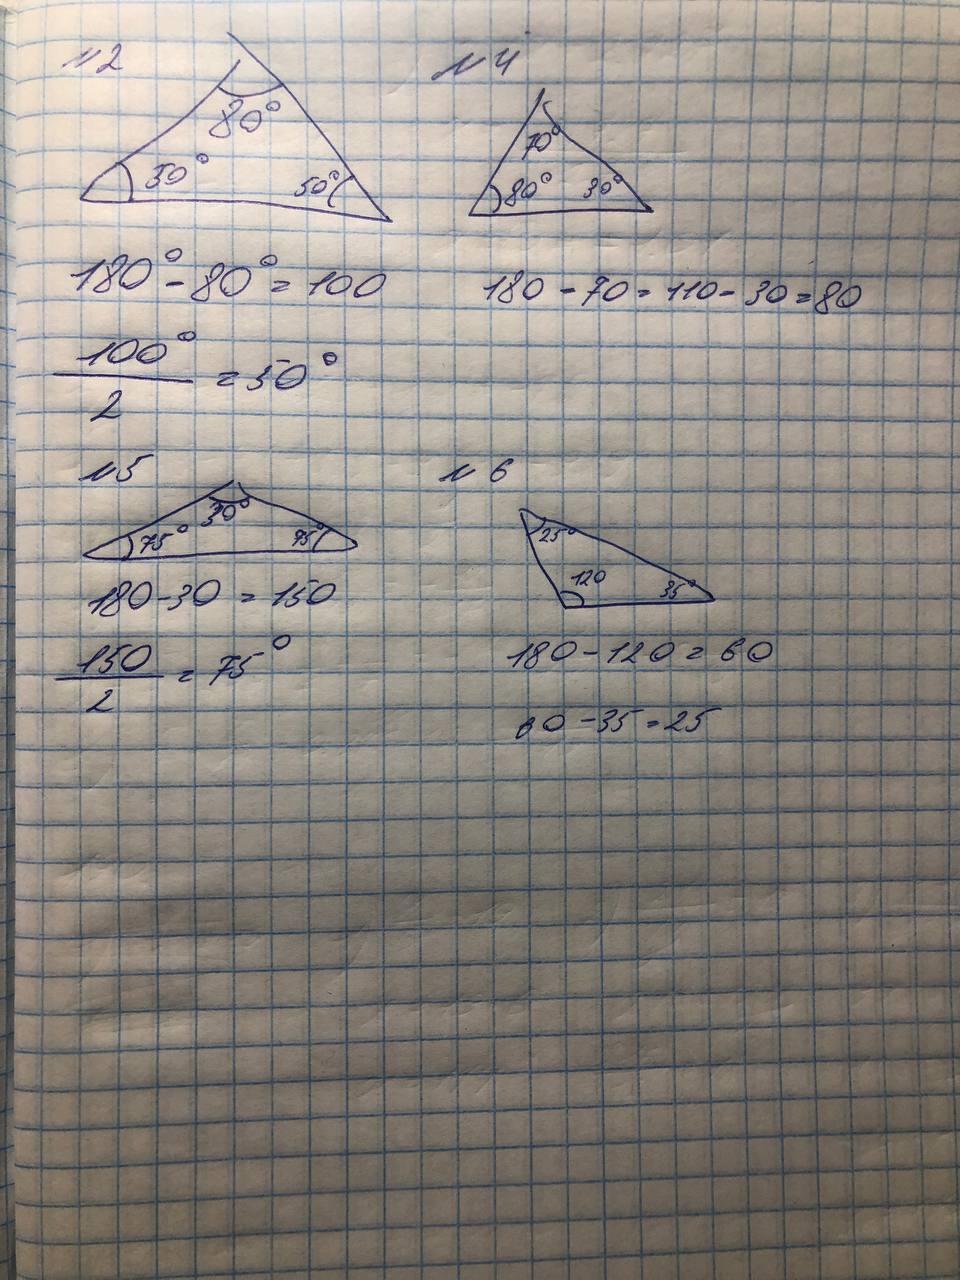 №2
80°
50°
50°
180° - 80° = 100
100°
2
= 50°
№4
70°
80°
30°
180 - 70 = 110 - 30 = 80
№5
30°
75°
75°
180 - 30 = 150
150
2
= 75°
№6
25°
120
35°
180 - 120 = 60
60 - 35 = 25